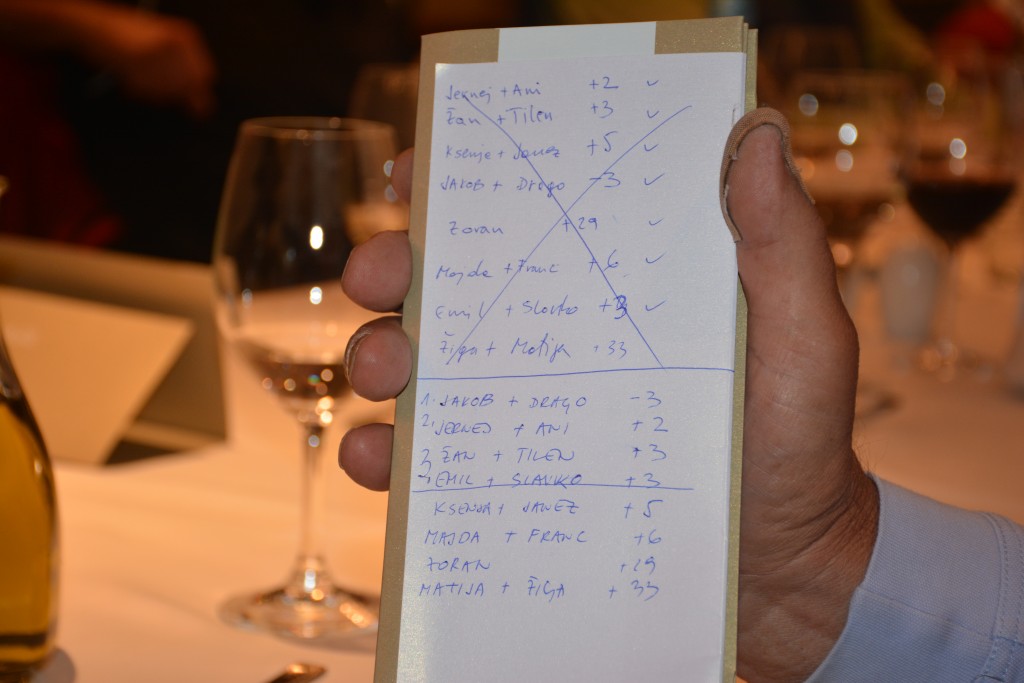 Jernej + Ani +2 ✓
Žan + Tilen +3 ✓
Ksenja + Janez +5 ✓
JAKOB + Drago -3 ✓
Zoran +29 ✓
Majda + Franc +6 ✓
Emil + Slavko +3 ✓
Žiga + Matija +33
1. JAKOB + DRAGO -3
2. JERNEJ + ANI +2
3 ŽAN + TILEN +3
3 EMIL + SLAVKO +3
KSENJA + JANEZ +5
MAJDA + FRANC +6
ZORAN +29
MATIJA + ŽIGA +33